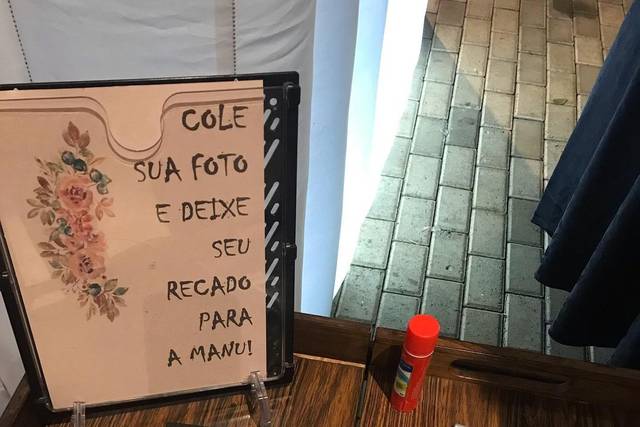 COLE
SUA FOTO
E DEIXE
SEU
RECADO
PARA
A MANU!